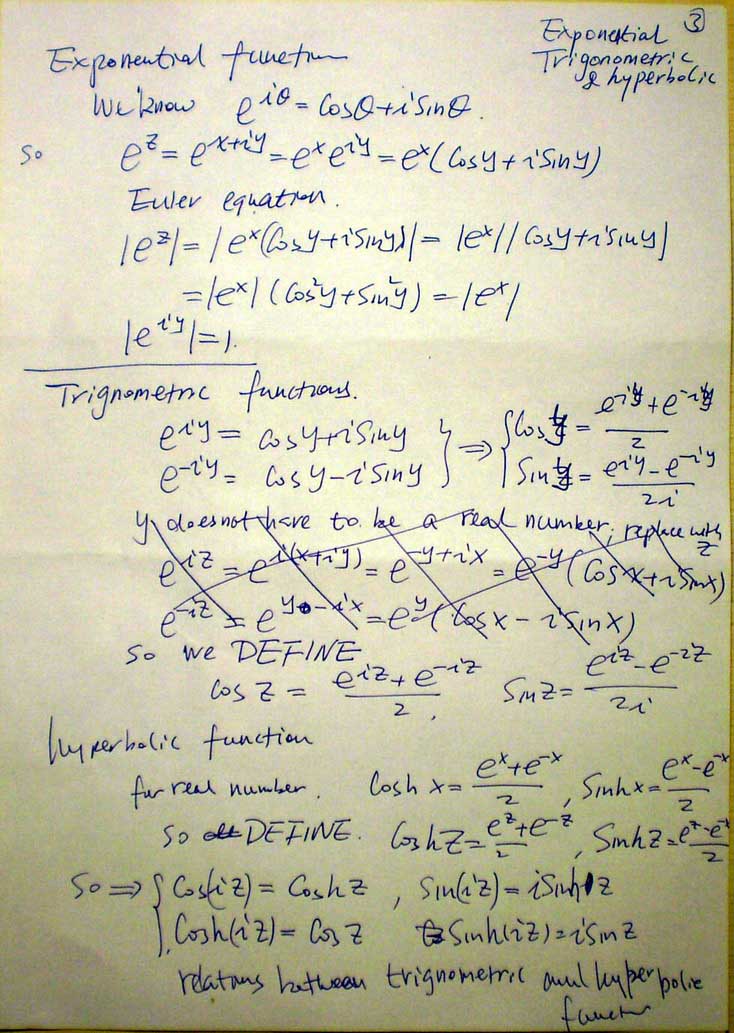 ③
Exponential
Trigonometric
& hyperbolic
Exponential function
We know e^{iθ} = cosθ + i sinθ.
So e^z = e^{x+iy} = e^x e^{iy} = e^x (cosy + i siny)
Euler equation.
|e^z| = |e^x (cosy + i siny)| = |e^x| |cosy + i siny|
= |e^x| (cos²y + sin²y) = |e^x|
|e^{iy}| = 1.
Trignometric functions.
e^{iy} = cosy + i siny } ⇒ { cos y = (e^{iy} + e^{-iy})/2
e^{-iy} = cosy - i siny } { sin y = (e^{iy} - e^{-iy})/2i
y does not have to be a real number; replace with z
e^{iz} = e^{i(x+iy)} = e^{-y+ix} = e^{-y} (cosx + i sinx)
e^{-iz} = e^{y-ix} = e^y (cosx - i sinx)
So we DEFINE
cos z = (e^{iz} + e^{-iz})/2, sin z = (e^{iz} - e^{-iz})/2i
hyperbolic function
for real number. cosh x = (e^x + e^{-x})/2, sinh x = (e^x - e^{-x})/2
so DEFINE. cosh z = (e^z + e^{-z})/2, sinh z = (e^z - e^{-z})/2
So ⇒ { cos(iz) = cosh z, sin(iz) = i sinh z
cosh(iz) = cos z sinh(iz) = i sin z
relations between trignometric and hyperbolic
function